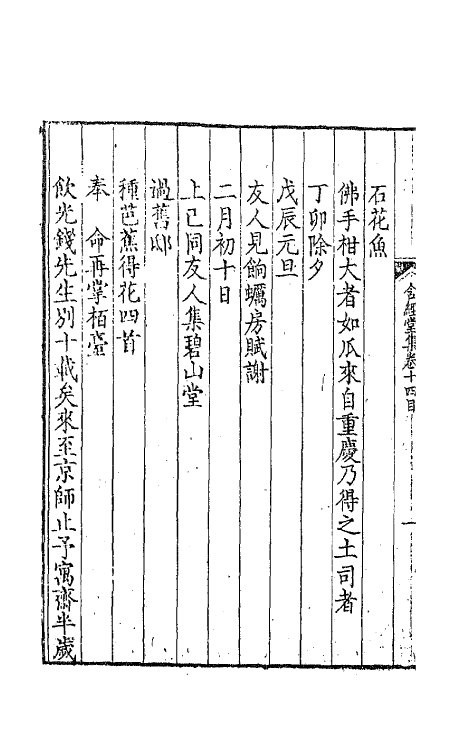 含經堂集卷十四目
一
石花魚
佛手柑大者如瓜來自重慶乃得之土司者
丁卯除夕
戊辰元旦
友人見餉蠣房賦謝
二月初十日
上巳同友人集碧山堂
過舊邸
種芭蕉得花四首
奉　命再掌栢臺
飲光錢先生别十載矣來至京師止予寓齋半歲